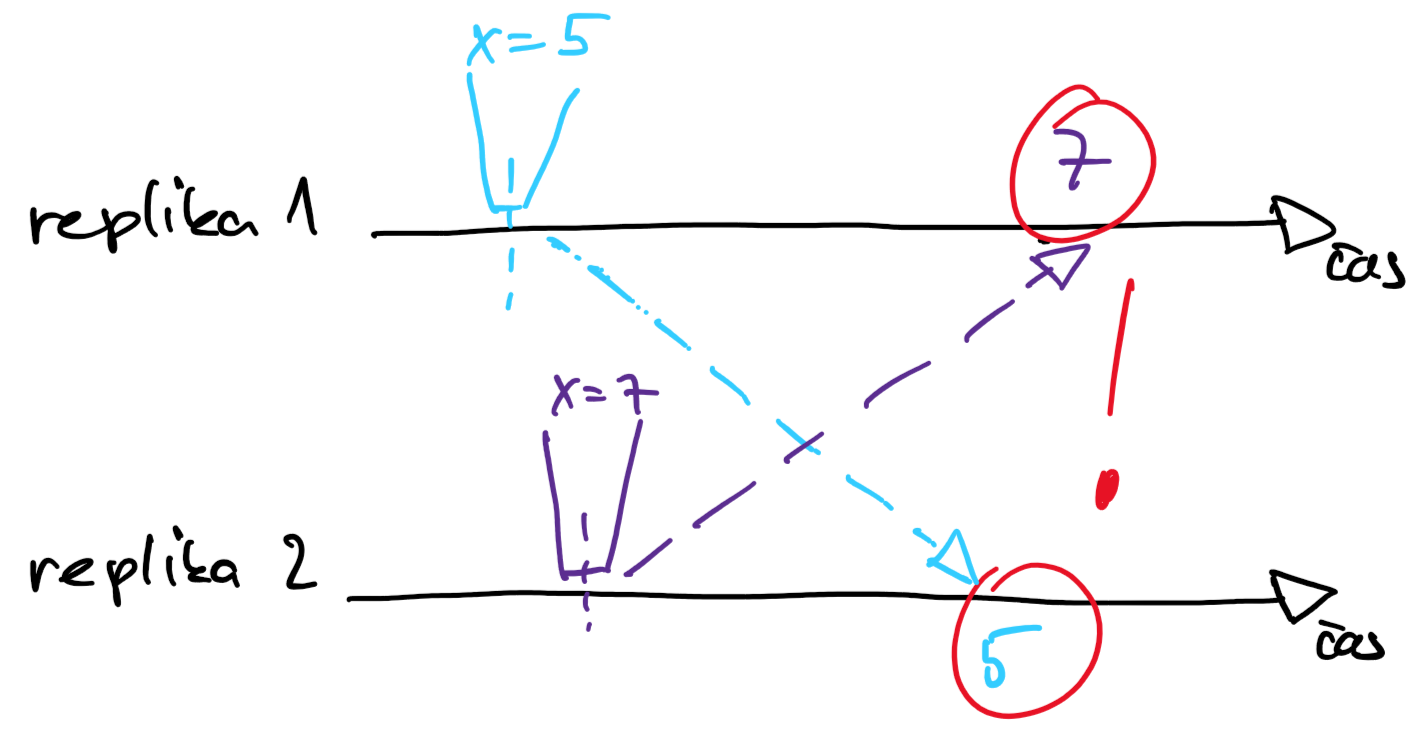 x = 5
7
replika 1
čas
x = 7
replika 2
čas
5